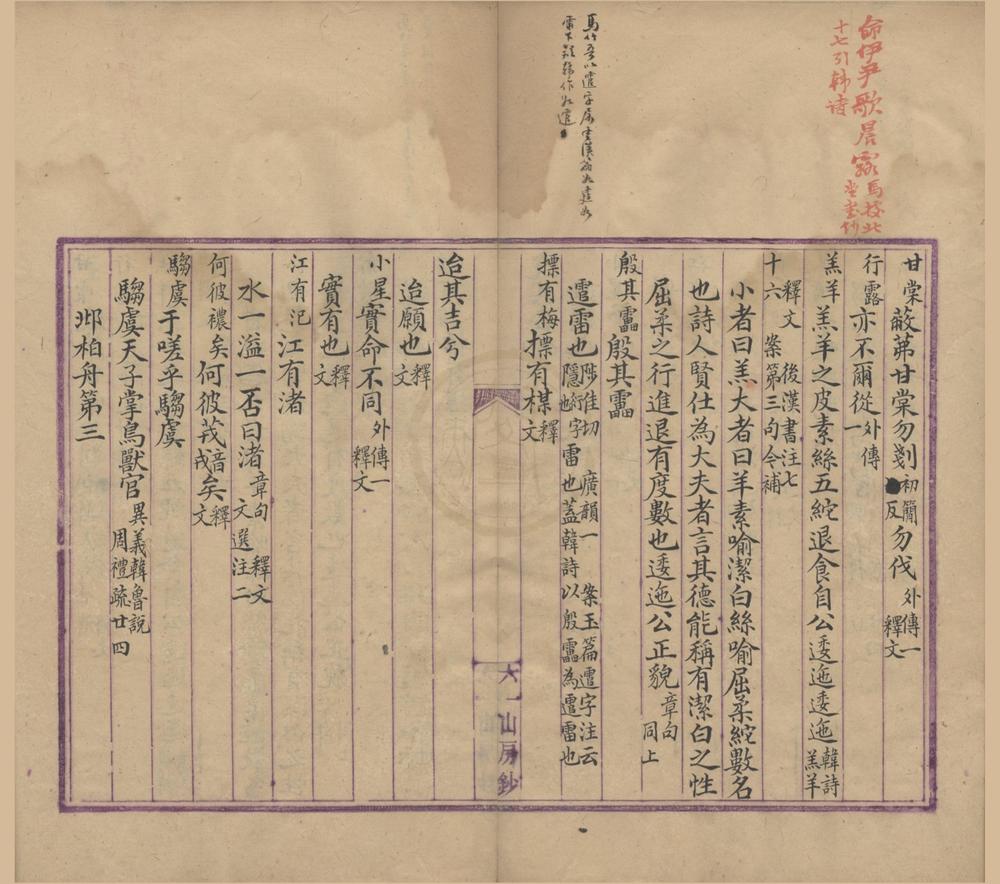 命伊尹歌晨露馬校北
堂書鈔
十七引韩诗
甘棠蔽茀甘棠勿剗初簡反勿伐外傳一釋文
行露亦不爾從外傳一
羔羊羔羊之皮素絲五紽退食自公逶迤逶迤韓詩羔羊
釋文後漢書注七
十六案第三句今補
小者曰羔大者曰羊素喻潔白絲喻屈柔紽數名
也詩人賢仕為大夫者言其德能稱有潔白之性
屈柔之行進退有度數也逶迤公正貌章句同上
殷其靁殷其靁
䨓雷也隱也廣韻一案玉篇字注云雷也蓋韓詩以殷靁為雷也
摽有梅摽有楳釋文
迨其吉兮
迨願也釋文
小星實命不同外傳一釋文
實有也釋文
江有汜江有渚
水一溢一否曰渚章句釋文文選注二
何彼襛矣何彼茙音戎矣釋文
騶虞于嗟乎騶虞
騶虞天子掌鳥獸官異義韓魯說周禮疏廿四
邶柏舟第三
六一山房鈔